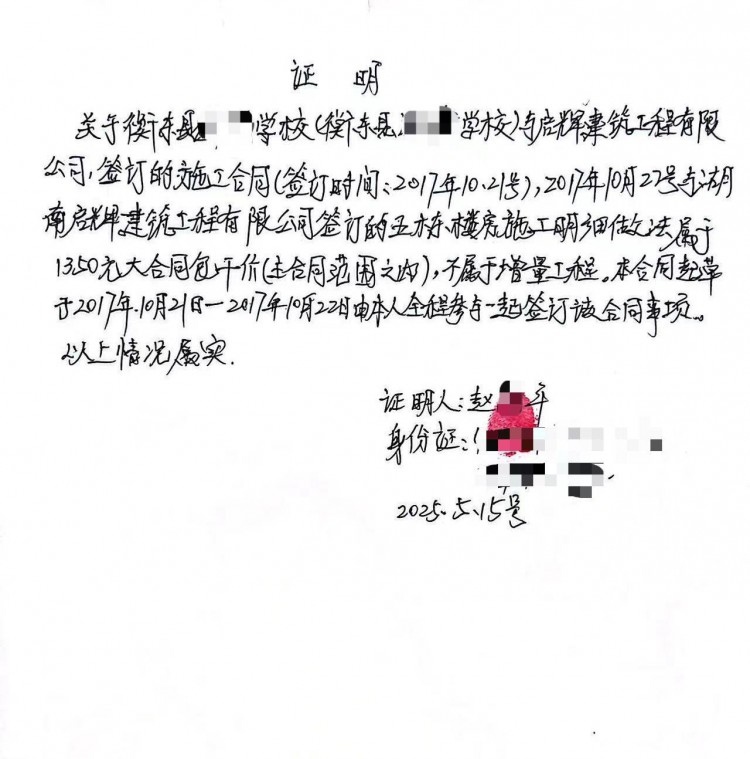 证 明
关于衡东县 学校(衡东县 学校)与启辉建筑工程有限
公司,签订的施工合同(签订时间:2017年10.21号),2017年10月27号与湖
南启辉建筑工程有限公司签订的五栋楼房施工明细做法属于
1350元大合同包干价(主合同范围之内),不属于增量工程。本合同起草
于2017年.10月21日—2017年10月22日由本人全程参与一起签订该合同事项。
以上情况属实.
证明人:赵 年
身份证:
2025.5.15号